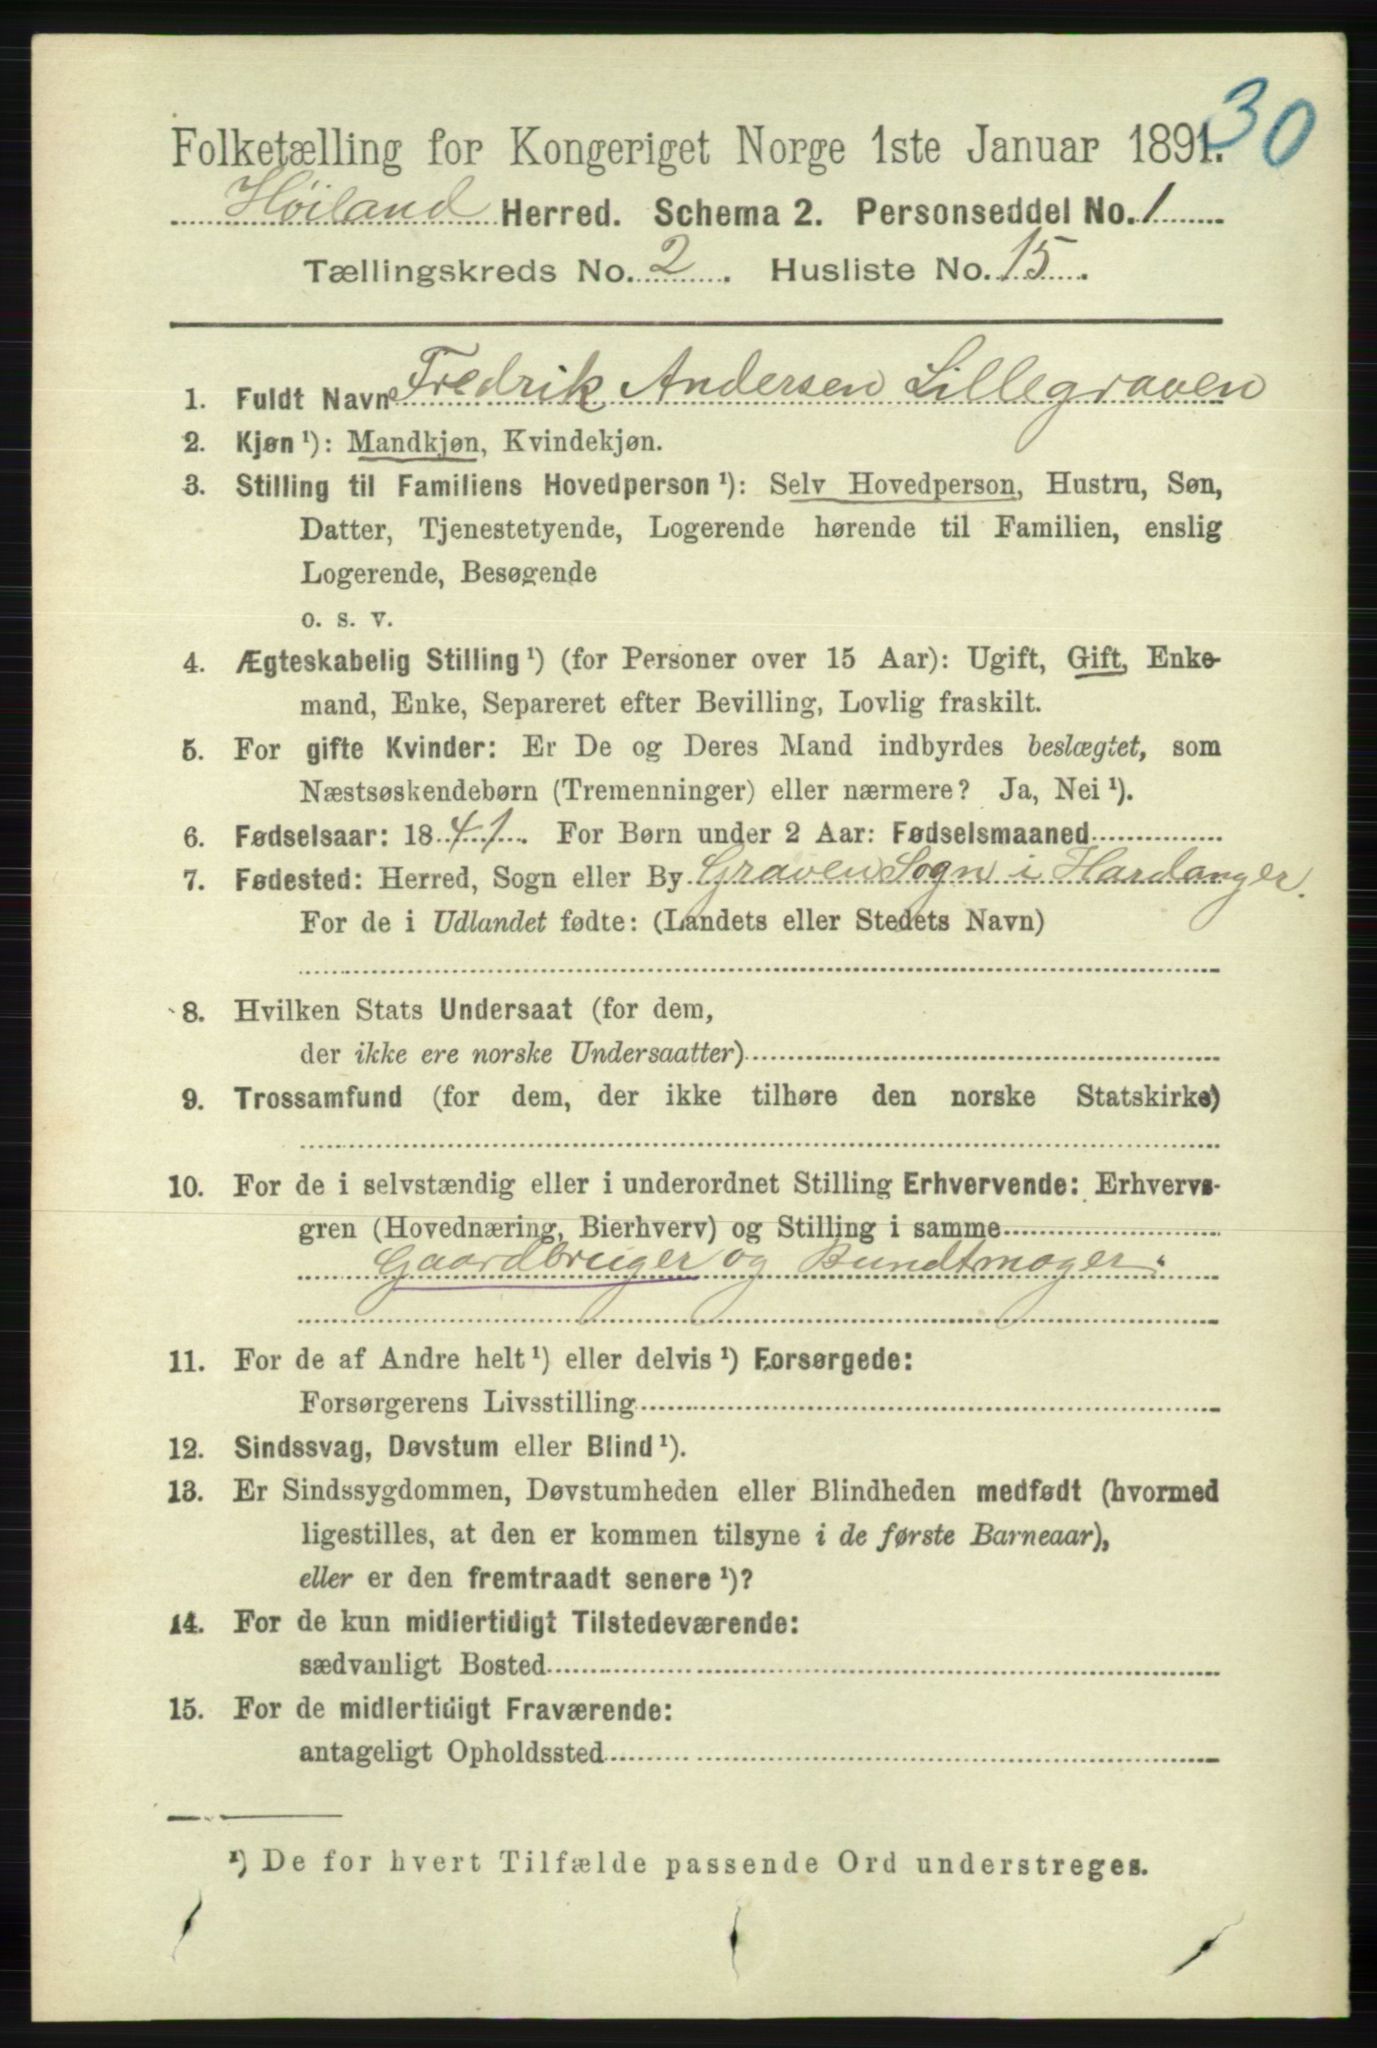 30
Folketælling for Kongeriget Norge 1ste Januar 1891.
Høiland Herred. Schema 2. Personseddel No. 1
Tællingskreds No. 2. Husliste No. 15.
1. Fuldt Navn Fredrik Andersen Lillegraven
2. Kjøn ¹): Mandkjøn, Kvindekjøn.
3. Stilling til Familiens Hovedperson ¹): Selv Hovedperson, Hustru, Søn,
Datter, Tjenestetyende, Logerende hørende til Familien, enslig
Logerende, Besøgende
o. s. v.
4. Ægteskabelig Stilling ¹) (for Personer over 15 Aar): Ugift, Gift, Enke-
mand, Enke, Separeret efter Bevilling, Lovlig fraskilt.
5. For gifte Kvinder: Er De og Deres Mand indbyrdes beslægtet, som
Næstsøskendebørn (Tremenninger) eller nærmere? Ja, Nei ¹).
6. Fødselsaar: 1841. For Børn under 2 Aar: Fødselsmaaned
7. Fødested: Herred, Sogn eller By Graven Sogn i Hardanger.
For de i Udlandet fødte: (Landets eller Stedets Navn)
8. Hvilken Stats Undersaat (for dem,
der ikke ere norske Undersaatter)
9. Trossamfund (for dem, der ikke tilhøre den norske Statskirke)
10. For de i selvstændig eller i underordnet Stilling Erhvervende: Erhvervs-
gren (Hovednæring, Bierhverv) og Stilling i samme
Gaardbruger og Bundtmager.
11. For de af Andre helt ¹) eller delvis ¹) Forsørgede:
Forsørgerens Livsstilling
12. Sindssvag, Døvstum eller Blind ¹).
13. Er Sindssygdommen, Døvstumheden eller Blindheden medfødt (hvormed
ligestilles, at den er kommen tilsyne i de første Barneaar),
eller er den fremtraadt senere ¹)?
14. For de kun midlertidigt Tilstedeværende:
sædvanligt Bosted
15. For de midlertidigt Fraværende:
antageligt Opholdssted
¹) De for hvert Tilfælde passende Ord understreges.